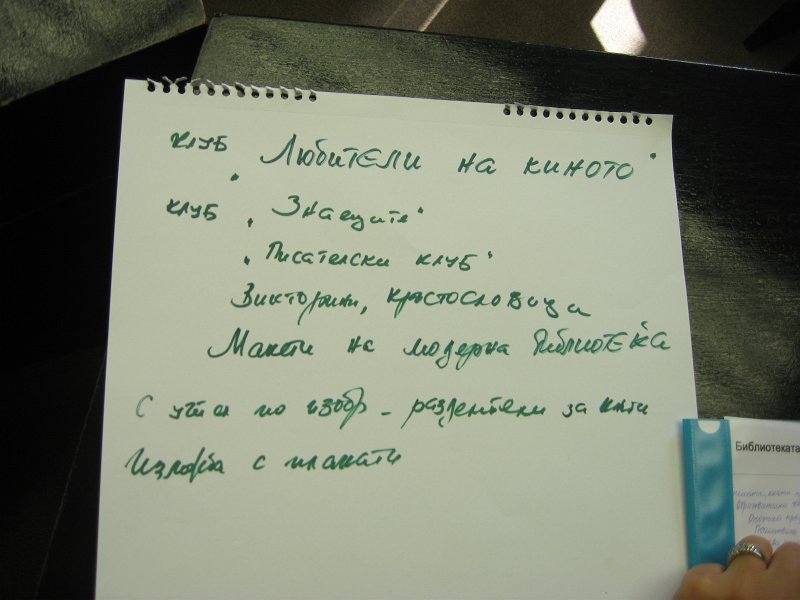 клуб „Любители на киното"
клуб „Знаещите"
„Писателски клуб"
Викторини, кръстословици
Макети на модерна библиотека
С у-теля по изобр - разделители за книги
Изложба с плакати
Библиотеката